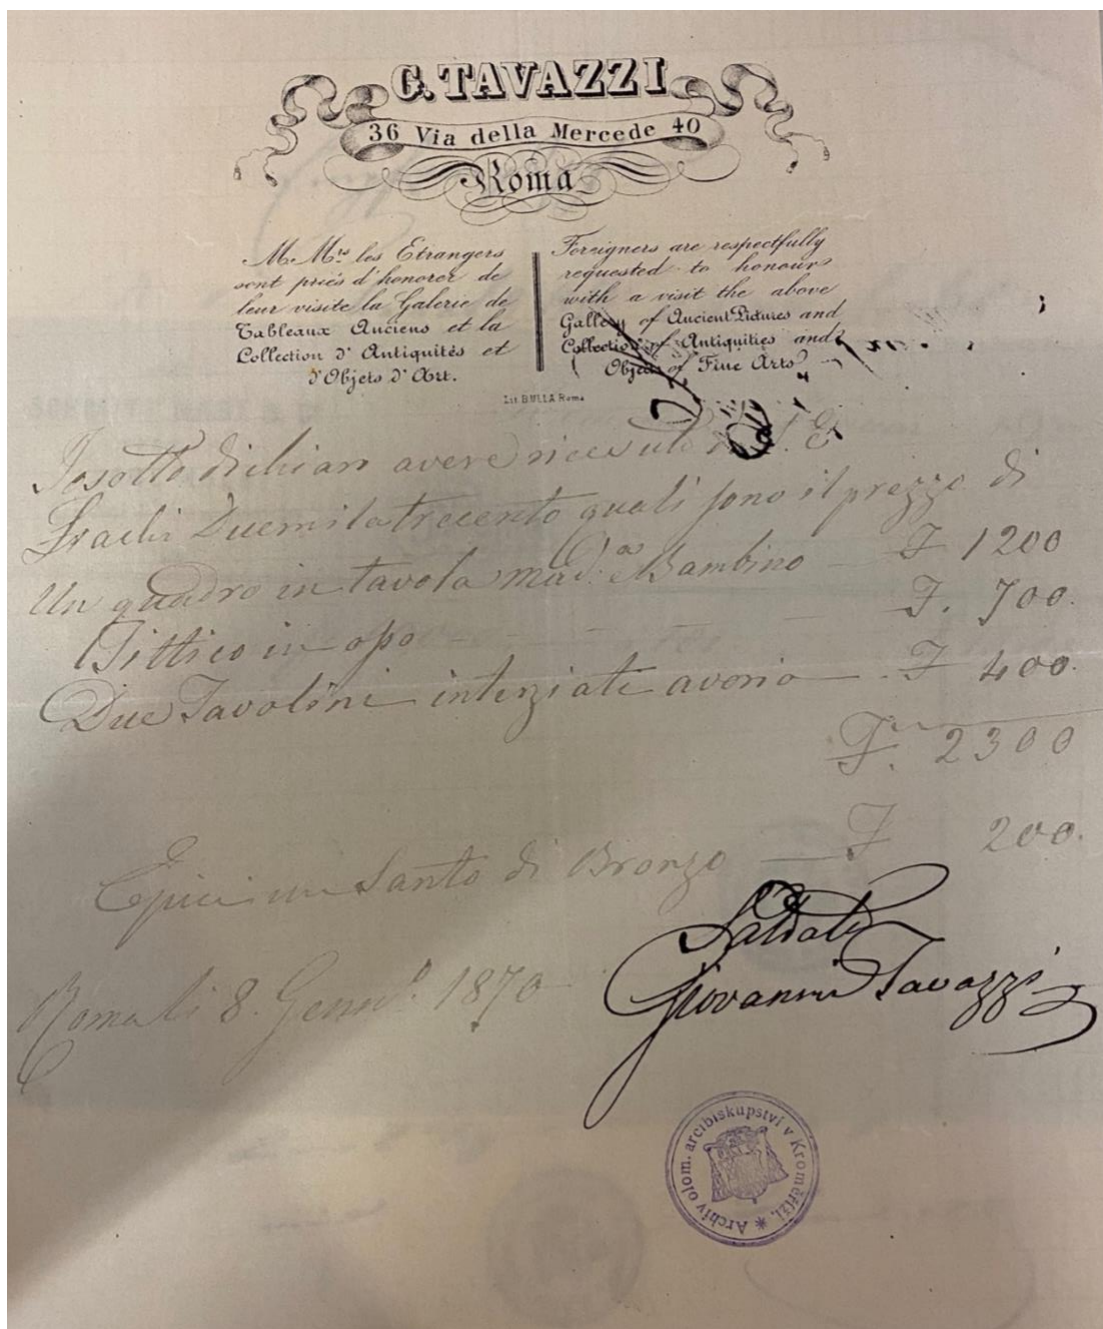 G. TAVAZZI
36 Via della Mercede 40
Roma
M. Mrs les Etrangers
sont priés d'honorer de
leur visite la Galerie de
Tableaux Anciens et la
Collection d'Antiquités et
d'Objets d'Art.
Foreigners are respectfully
requested to honour
with a visit the above
Gallery of Ancient Pictures and
Collection of Antiquities and
Objects of Fine Arts
Lit. BULLA Roma
Io sotto dichiaro avere ricevuto S. E.
Franchi Duemilatrecento quali sono il prezzo di
Un quadro in tavola Mad.a e Bambino F 1200
Dittico in opo F. 700.
Due Tavolini interziati avorio F 400.
F. 2300
E piu un Santo di Bronzo F 200.
Roma li 8. Genn. 1870
Saldato
Giovanni Tavazzi
Archiv olom. arcibiskupství v Kroměříži. *